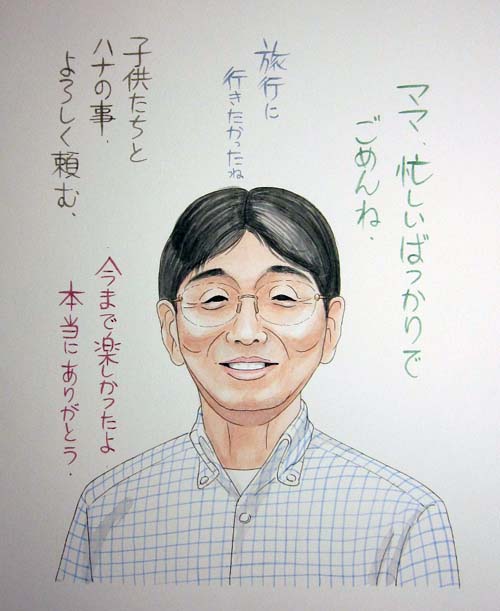 ママ、忙しいばっかりで
ごめんね.
旅行に
行きたかったね
子供たちと
ハナの事.
よろしく頼む、
今まで楽しかったよ
本当にありがとう.